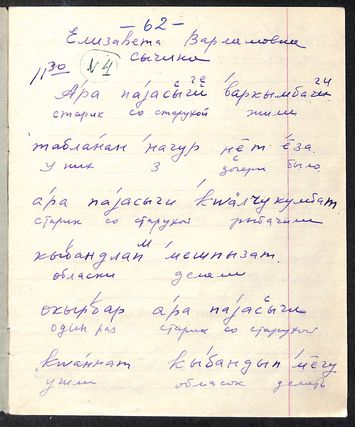 — 62 —
Елизавета Варламовна
Сычина
11 30 № 4
А́ра паjасы́гӣ ва́ркымба́гӣ
старик со старухой жили
таблáнан нáгур нӗт ёза.
у них 3 дочери было
áра паjасыги квӓлчукумбат
старик со старухой рыбачили
кы́бандлап мешпызат.
обласки делали
окы́рбар áра паjасыги
один раз старик со старухой
квáннат кы́бандып ме́гу
ушли обласок делать